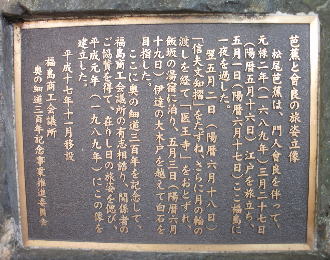 芭蕉と曾良の旅姿立像
松尾芭蕉は、門人曾良を伴って、
元禄二年(一六八九年)三月二十七日
(陽暦五月十六日)江戸を旅立ち、
五月一日(陽暦六月十七日)ここ福島に
一夜を過した。
翌五月二日(陽暦六月十八日)
「信夫文知摺」をたずね、さらに月の輪の
渡しを経て「医王寺」をおとずれ、
飯坂の湯宿に泊り、五月三日(陽暦六月
十九日)伊達の大木戸を越えて白石を
目指した。
ここに奥の細道三百年を記念して、
福島商工会議所の有志相諮り、関係者の
ご協賛を得て、在りし日の旅姿を偲び、
平成元年(一九八九年)にこの像を
建立した。
平成十七年十一月移設
福島商工会議所
奥の細道三百年記念事業推進委員会